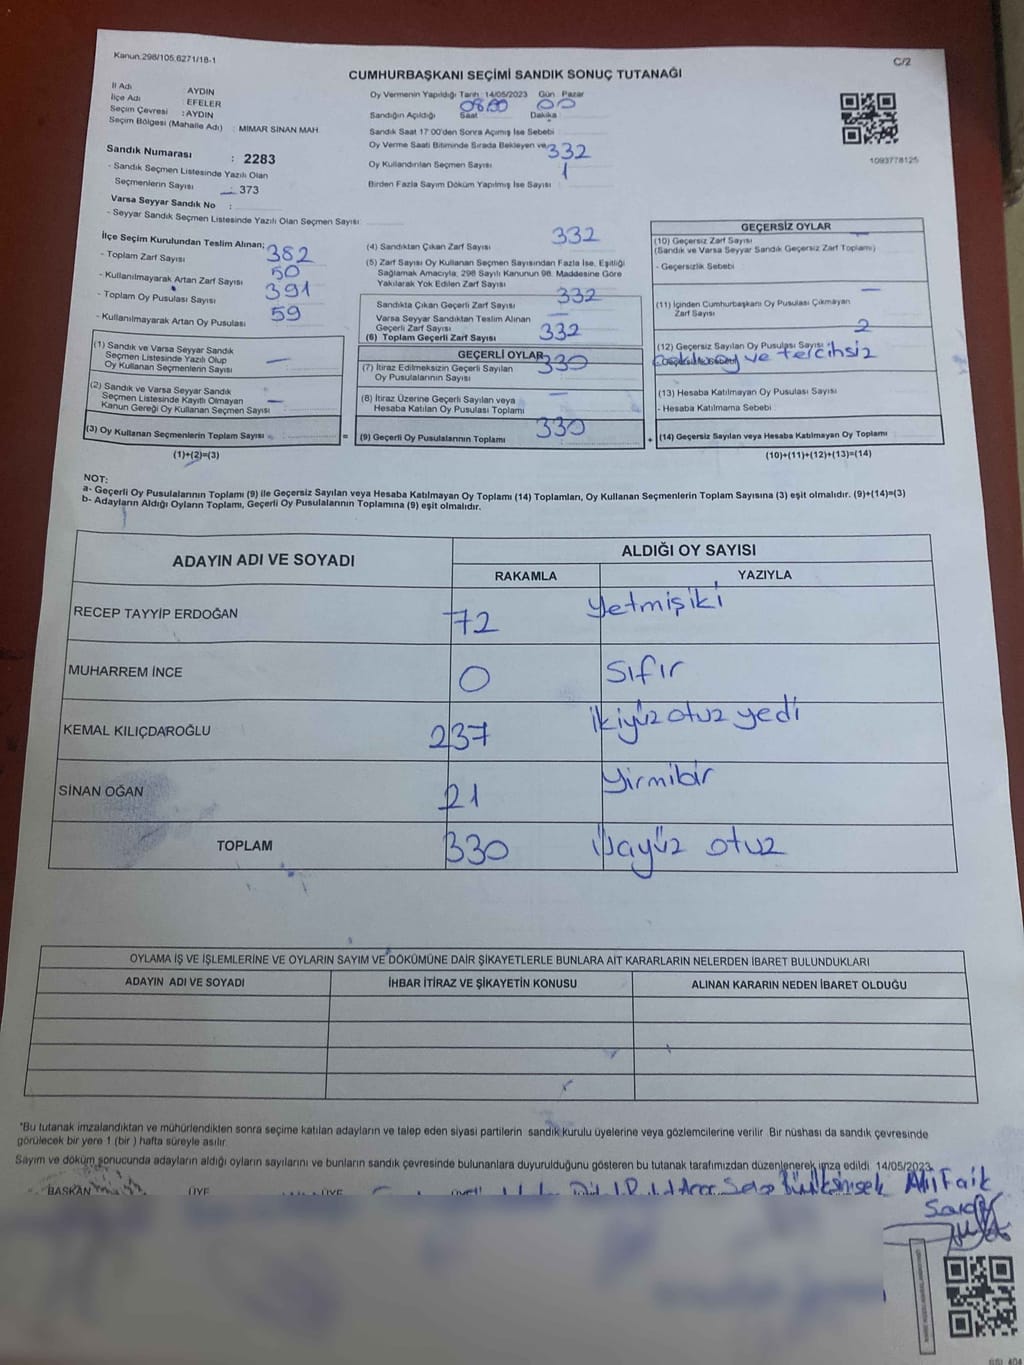 Kanun:298/105,6271/18-1
C/2
CUMHURBAŞKANI SEÇİMİ SANDIK SONUÇ TUTANAĞI
İl Adı : AYDIN
İlçe Adı : EFELER
Seçim Çevresi : AYDIN
Seçim Bölgesi (Mahalle Adı) : MİMAR SİNAN MAH.
Sandık Numarası : 2283
- Sandık Seçmen Listesinde Yazılı Olan
Seçmenlerin Sayısı : 373
Varsa Seyyar Sandık No :
- Seyyar Sandık Seçmen Listesinde Yazılı Olan Seçmen Sayısı
Oy Vermenin Yapıldığı Tarih 14/05/2023 Gün Pazar
Sandığın Açıldığı Saat 08:00 Dakika 00
Sandık Saat 17:00'den Sonra Açılmış İse Sebebi
Oy Verme Saati Bitiminde Sırada Bekleyen ve
Oy Kullandırılan Seçmen Sayısı 332
Birden Fazla Sayım Döküm Yapılmış İse Sayısı 1
1093778125
İlçe Seçim Kurulundan Teslim Alınan;
- Toplam Zarf Sayısı 382
- Kullanılmayarak Artan Zarf Sayısı 50
- Toplam Oy Pusulası Sayısı 391
- Kullanılmayarak Artan Oy Pusulası 59
(1) Sandık ve Varsa Seyyar Sandık
Seçmen Listesinde Yazılı Olup
Oy Kullanan Seçmenlerin Sayısı —
(2) Sandık ve Varsa Seyyar Sandık
Seçmen Listesinde Kayıtlı Olmayan
Kanun Gereği Oy Kullanan Seçmen Sayısı —
(3) Oy Kullanan Seçmenlerin Toplam Sayısı
(1)+(2)=(3)
(4) Sandıktan Çıkan Zarf Sayısı 332
(5) Zarf Sayısı Oy Kullanan Seçmen Sayısından Fazla İse, Eşitliği
Sağlamak Amacıyla, 298 Sayılı Kanunun 98. Maddesine Göre
Yakılarak Yok Edilen Zarf Sayısı —
Sandıkta Çıkan Geçerli Zarf Sayısı 332
Varsa Seyyar Sandıktan Teslim Alınan
Geçerli Zarf Sayısı —
(6) Toplam Geçerli Zarf Sayısı 332
GEÇERLİ OYLAR
(7) İtiraz Edilmeksizin Geçerli Sayılan
Oy Pusulalarının Sayısı 330
(8) İtiraz Üzerine Geçerli Sayılan veya
Hesaba Katılan Oy Pusulası Toplamı —
= (9) Geçerli Oy Pusulalarının Toplamı 330
GEÇERSİZ OYLAR
(10) Geçersiz Zarf Sayısı —
(Sandık ve Varsa Seyyar Sandık Geçersiz Zarf Toplamı)
- Geçersizlik Sebebi
(11) İçinden Cumhurbaşkanı Oy Pusulası Çıkmayan
Zarf Sayısı —
(12) Geçersiz Sayılan Oy Pusulası Sayısı 2
oy ve tercihsiz
(13) Hesaba Katılmayan Oy Pusulası Sayısı
- Hesaba Katılmama Sebebi
+ (14) Geçersiz Sayılan veya Hesaba Katılmayan Oy Toplamı
(10)+(11)+(12)+(13)=(14)
NOT:
a- Geçerli Oy Pusulalarının Toplamı (9) ile Geçersiz Sayılan veya Hesaba Katılmayan Oy Toplamı (14) Toplamları, Oy Kullanan Seçmenlerin Toplam Sayısına (3) eşit olmalıdır. (9)+(14)=(3)
b- Adayların Aldığı Oyların Toplamı, Geçerli Oy Pusulalarının Toplamına (9) eşit olmalıdır.
ADAYIN ADI VE SOYADI
ALDIĞI OY SAYISI
RAKAMLA YAZIYLA
RECEP TAYYİP ERDOĞAN 72 yetmişiki
MUHARREM İNCE 0 sıfır
KEMAL KILIÇDAROĞLU 237 ikiyüz otuz yedi
SİNAN OĞAN 21 yirmibir
TOPLAM 330 üçyüz otuz
OYLAMA İŞ VE İŞLEMLERİNE VE OYLARIN SAYIM VE DÖKÜMÜNE DAİR ŞİKAYETLERLE BUNLARA AİT KARARLARIN NELERDEN İBARET BULUNDUKLARI
ADAYIN ADI VE SOYADI İHBAR İTİRAZ VE ŞİKAYETİN KONUSU ALINAN KARARIN NEDEN İBARET OLDUĞU
*Bu tutanak imzalandıktan ve mühürlendikten sonra seçime katılan adayların ve talep eden siyasi partilerin sandık kurulu üyelerine veya gözlemcilerine verilir. Bir nüshası da sandık çevresinde
görülecek bir yere 1 (bir ) hafta süreyle asılır.
Sayım ve döküm sonucunda adayların aldığı oyların sayılarını ve bunların sandık çevresinde bulunanlara duyurulduğunu gösteren bu tutanak tarafımızdan düzenlenerek imza edildi. 14/05/2023
BAŞKAN ÜYE ÜYE Ali Faik